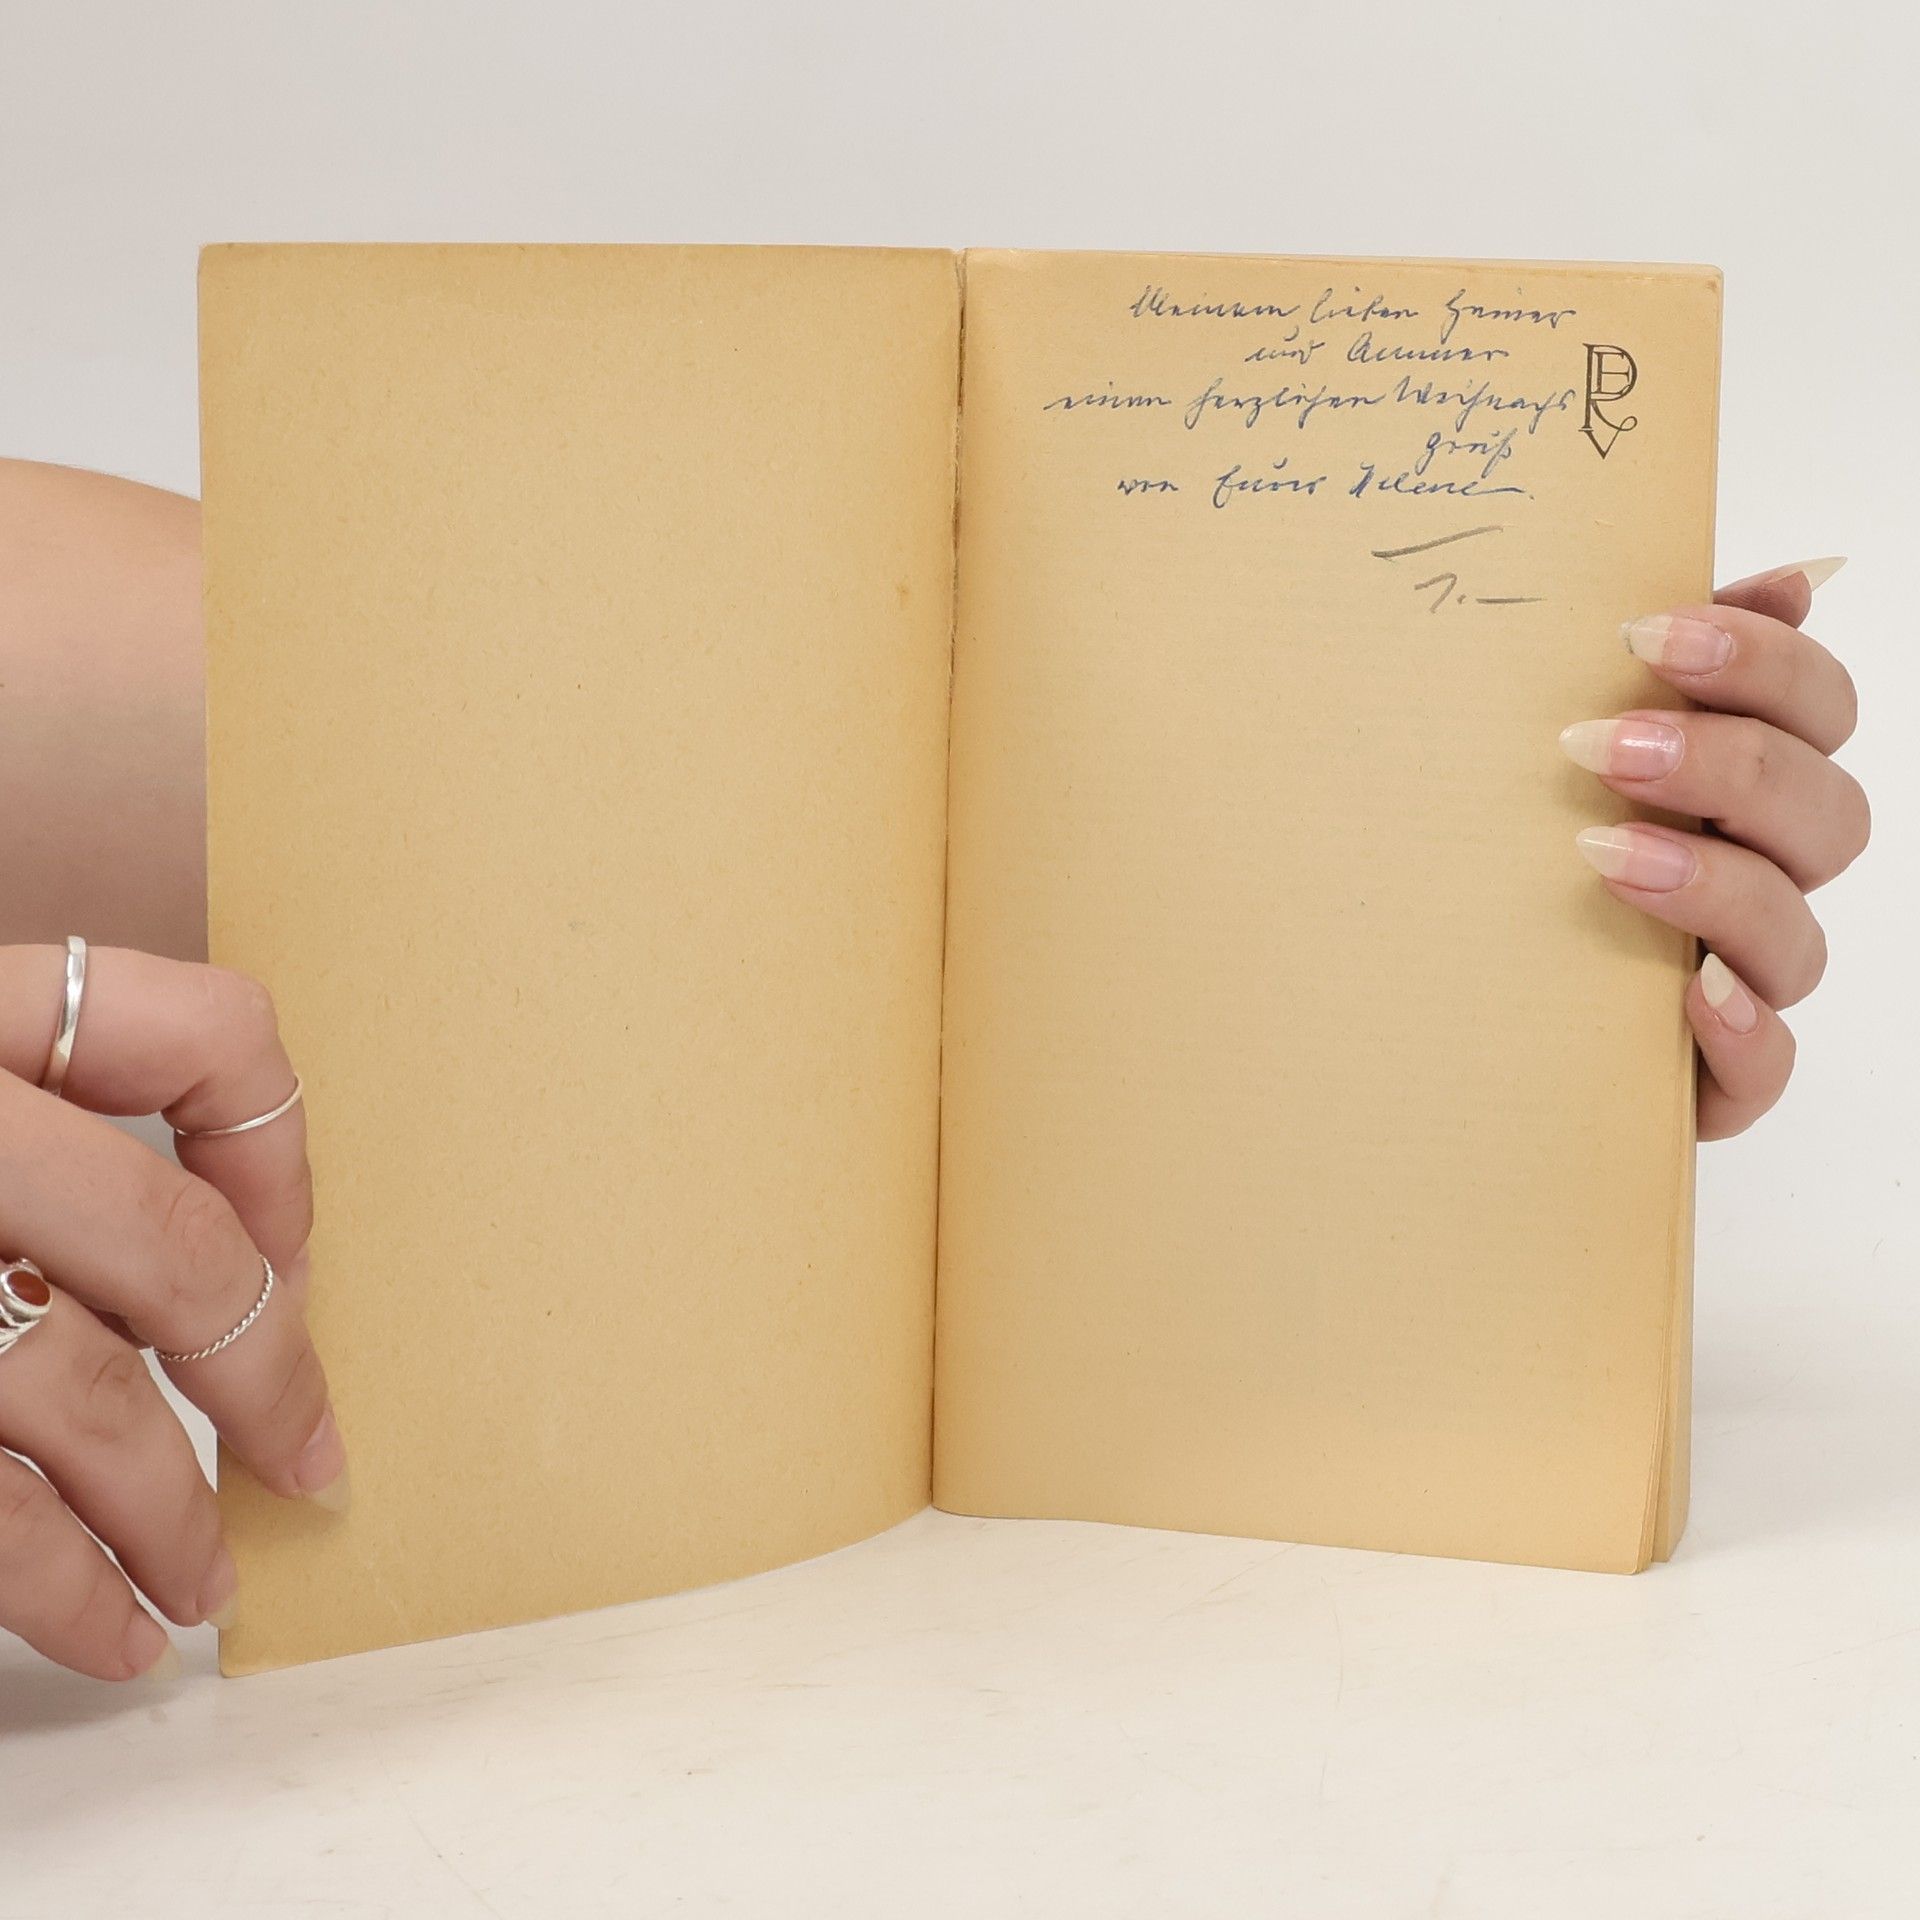 Meinem lieben Heiner
und Ammer
einen herzlichen Weihnachs
gruß
von Eurer Helene.
1.—